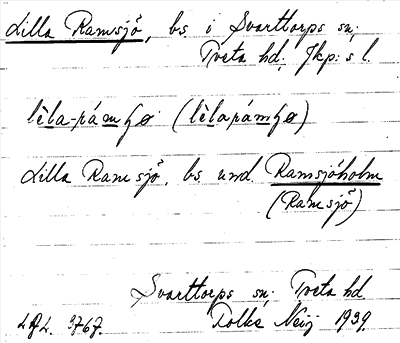 Lilla Ramsjö, bs i Svarttorps sn;
Tveta hd; Jkp:s l.
lèla-rámʃø (lèlarámʃø)
Lilla Ramsjö, bs und. Ramsjöholm
(Ramsjö)
Svarttorps sn; Tveta hd
3767. Folke Neij 1939.